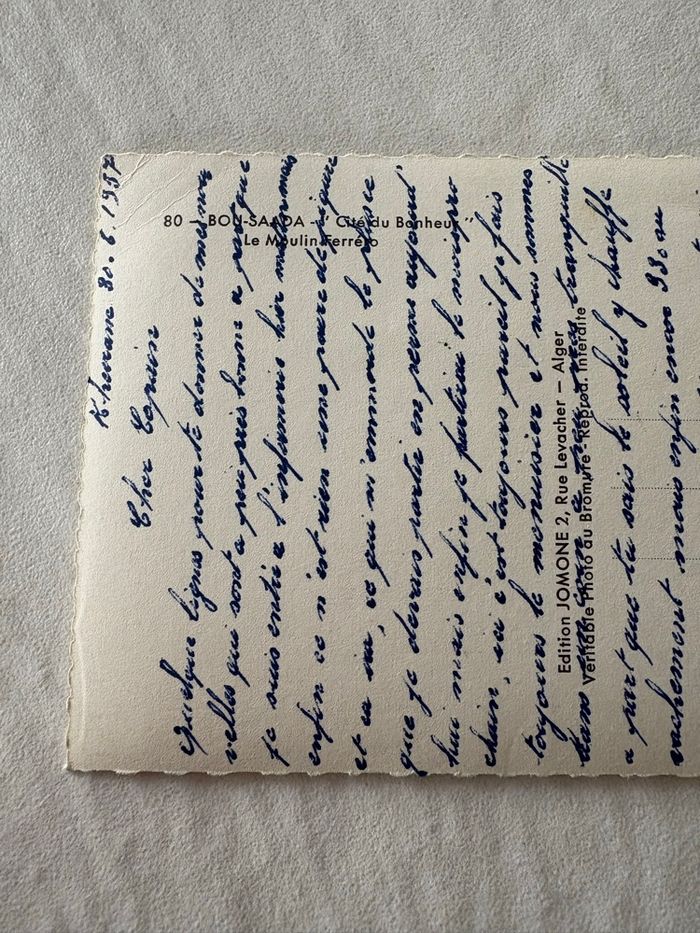 80 - BOU-SAADA - "Cité du Bonheur"
Le Moulin Ferréro
Edition JOMONE 2, Rue Levacher - Alger
Véritable Photo au Bromure - Reprod. Interdite
30.6.1957
Cher Copain
Quelque lignes pour te donner de mes nou
velles qui sont a peu pres bonne a part que
je suis entré a l'infirmerie hier
enfin ce n'est rien une paire de piqure
et ca va, ce qui m'emmerde le plus c'e
que je devais partir en perme aujourd'
hui mais enfin je partirai le mois pro
chain, ici c'est toujours pareil je fais
toujours le menuisier et nous sommes
dans un coin a peu pres tranquille
a part que tu sais le soleil y chauffe
vachement mais enfin encore